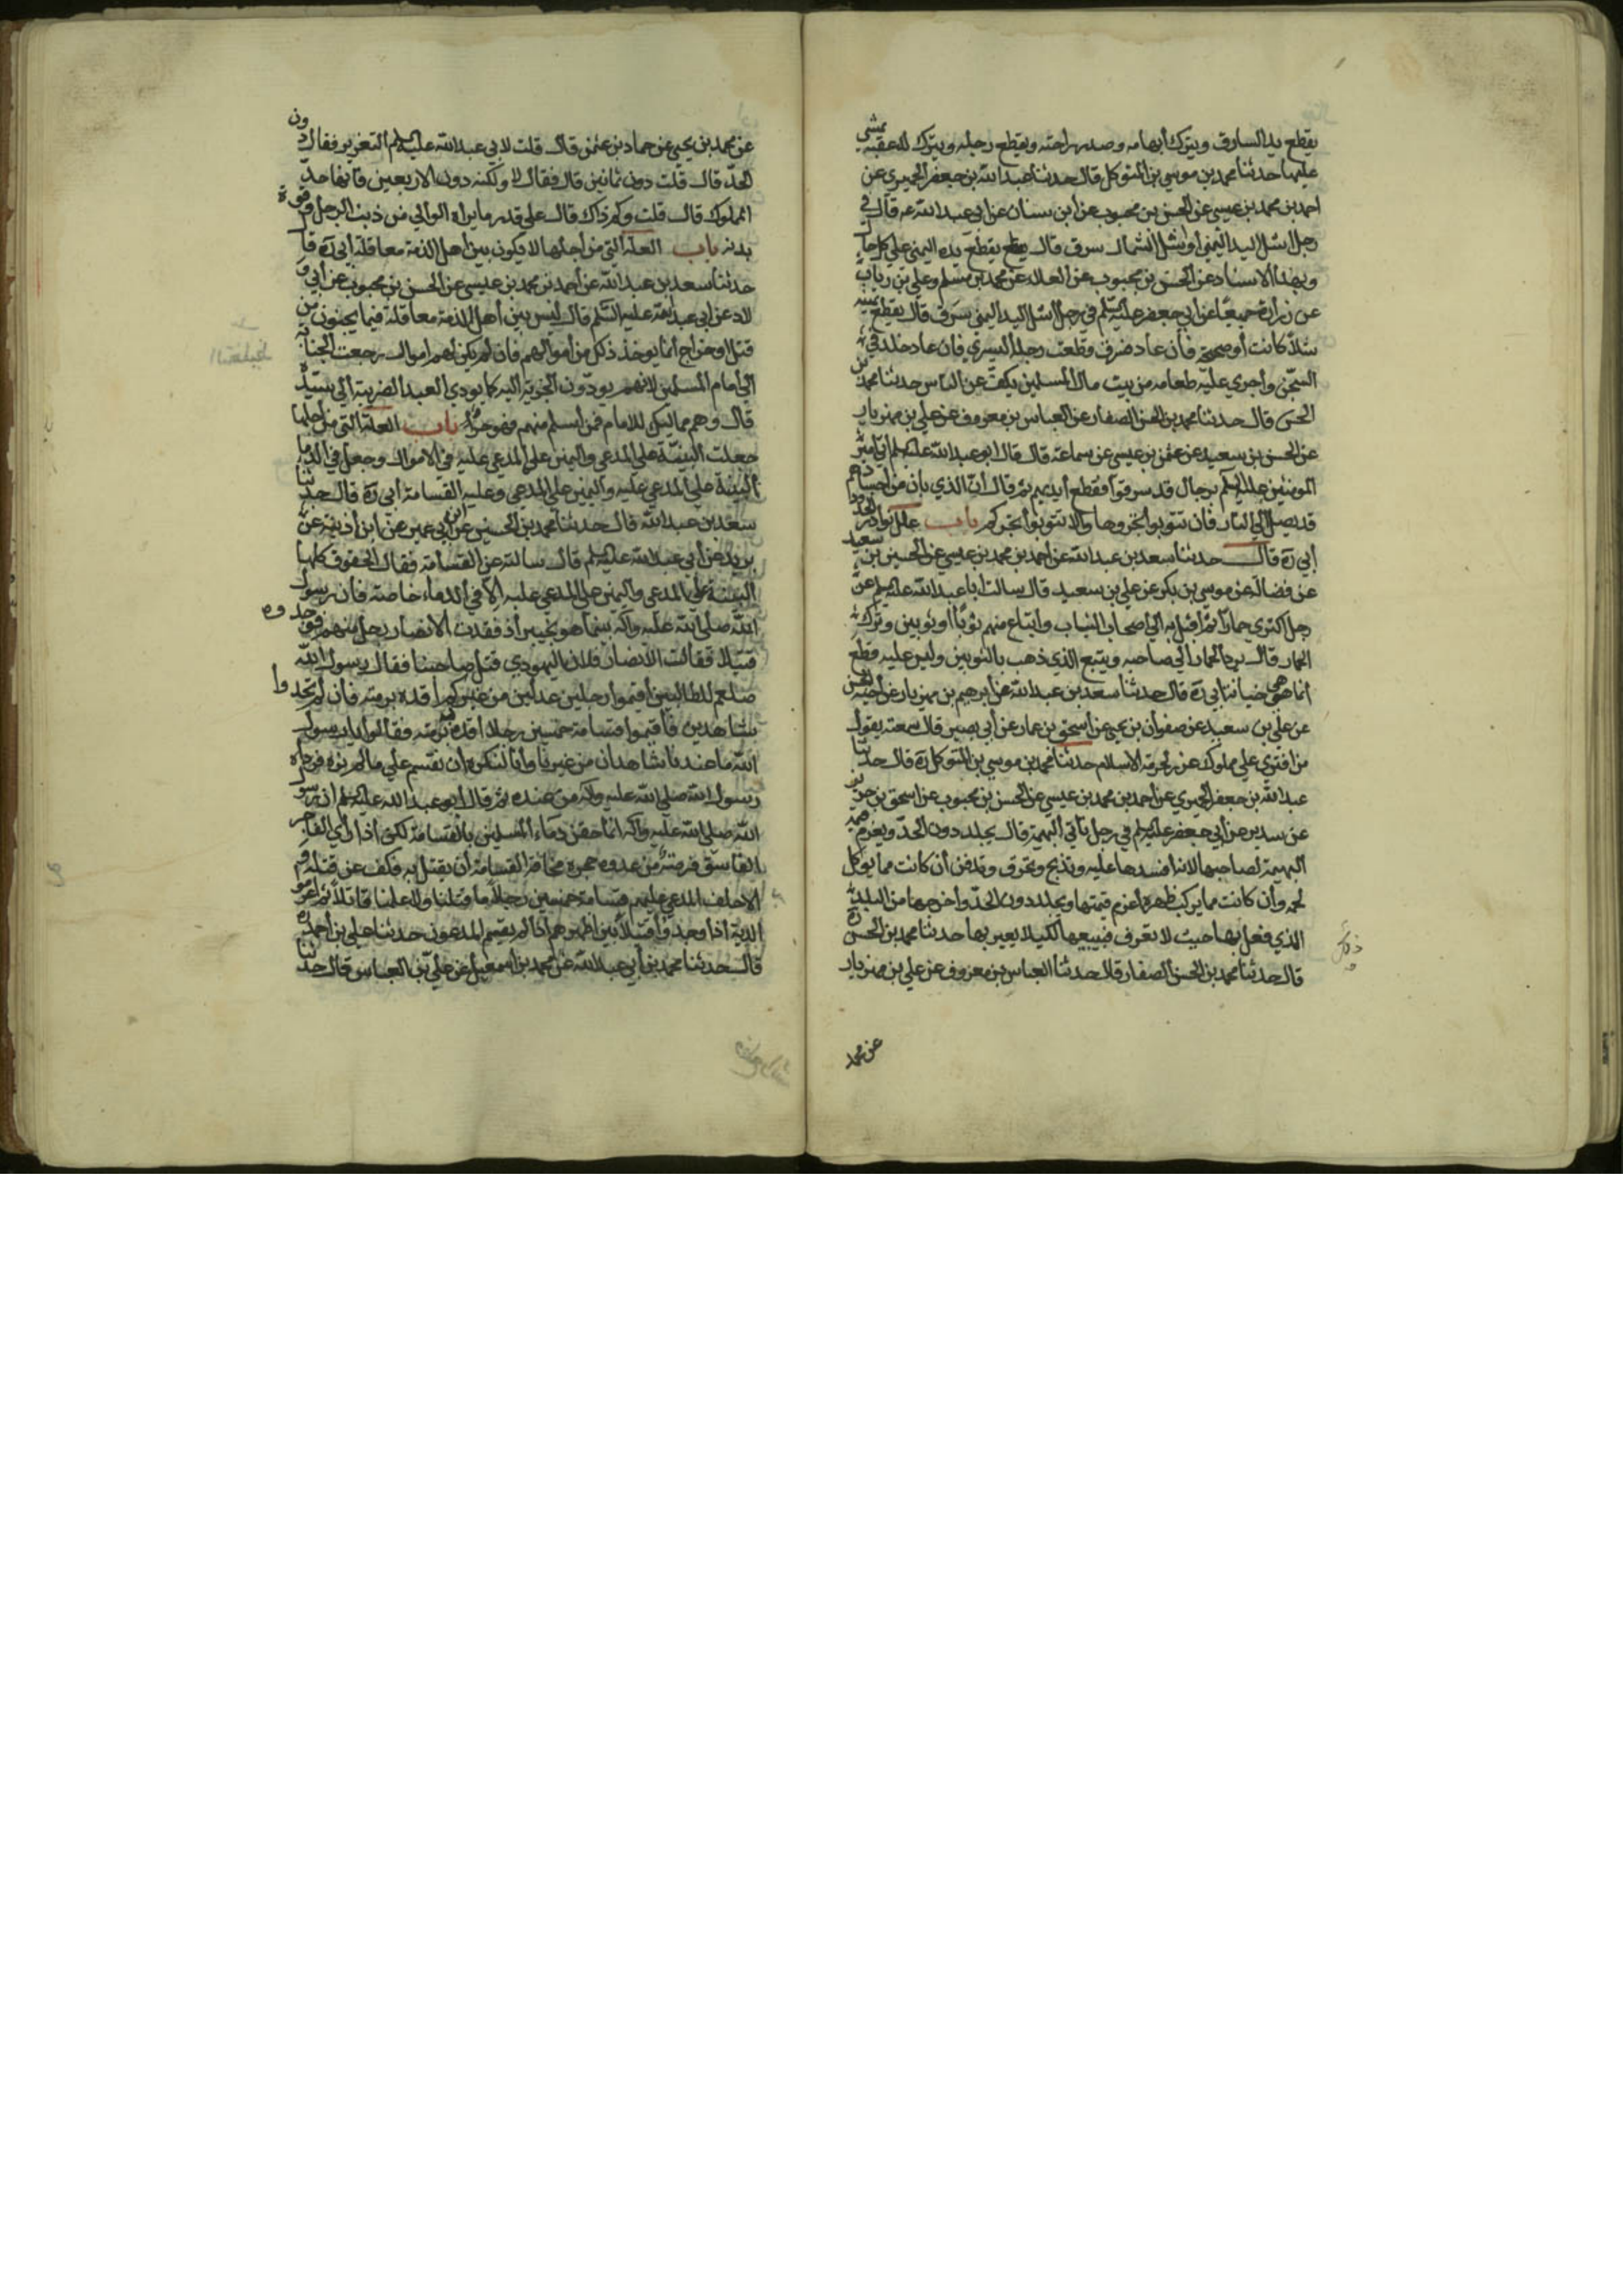 يقطع يد السارق ويترك ابهامه وصدر راحته ويقطع رجله ويترك له عقبه يمشي
عليها حدثنا محمد بن موسى بن المتوكل قال حدثنا عبد الله بن جعفر الحميري عن
احمد بن محمد بن عيسى عن الحسن بن محبوب عن ابن سنان عن ابي عبد الله عه قال في
رجل اشل اليد اليمنى او اشل الشمال سرق قال يقطع يده اليمنى على كل حال
وبهذا الاسناد عن الحسن بن محبوب عن العلا عن محمد بن مسلم وعلي بن رياب
عن زرارة جميعا عن ابي جعفر عليه السلم في رجل اشل اليد اليمنى سرق قال يقطع يمينه
شلا كانت او صحيحة فان عاد فسرق وقطعت رجله اليسرى فان عاد خلد في
السجن واجري عليه طعامه من بيت مال المسلمين يكف عن الناس حدثنا محمد بن
الحسن قال حدثنا محمد بن الحسن الصفار عن العباس بن معروف عن علي بن مهزيار
عن الحسن بن سعيد عن عثمن بن عيسى عن سماعة قال قال ابو عبد الله عليه السلم اتي امير
المومنين عليه السلم برجال قد سرقوا فقطع ايديهم ثم قال ان الذي بان من اجسادهم
قد يصل الى النار فان تتوبوا تجروها والا تتوبوا تجركم باب علل نوادر الحدود
ابي ره قال حدثنا سعد بن عبد الله عن احمد بن محمد بن عيسى عن الحسين بن سعيد
عن فضالة عن موسى بن بكر عن علي بن سعيد قال سالت ابا عبد الله عليه السلم عن
رجل اكترى حمارا ثم اقبل به الى اصحاب الثياب وابتاع منهم ثوبا او ثوبين وترك
الحمار قال يرد الحمار الى صاحبه ويتبع الذي ذهب بالثوبين وليس عليه قطع
انما هي خيانة ابي ره قال حدثنا سعد بن عبد الله عن ابرهيم بن مهزيار عن اخيه
عن علي بن سعيد عن صفوان بن يحيى عن اسحق بن عمار عن ابي بصير قال سمعته يقول
من افترى على مملوك عزر لحرمة الاسلام حدثنا محمد بن موسى بن المتوكل ره قال حدثنا
عبد الله بن جعفر الحميري عن احمد بن محمد بن عيسى عن الحسن بن محبوب عن اسحق بن جرير
عن سدير عن ابي جعفر عليه السلم في رجل ياتي البهيمة قال يجلد دون الحد ويغرم قيمة
البهيمة لصاحبها لانه افسدها عليه وتذبح وتحرق وتدفن ان كانت مما يوكل
لحمه وان كانت مما يركب ظهره اغرم قيمتها ويجلد دون الحد واخرجها من البلد
الذي فعل بها حيث لا تعرف فيبيعها لكيلا يعير بها حدثنا محمد بن الحسن ره
قال حدثنا محمد بن الحسن الصفار قال حدثنا العباس بن معروف عن علي بن مهزيار
عن محمد
عن محمد بن يحيى عن حماد بن عثمن قال قلت لابي عبد الله عليه السلم التعزير فقال دون
الحد قال قلت دون ثمانين قال فقال لا ولكنه دون الاربعين فانها حد
المملوك قال قلت وكم ذاك قال على قدر ما يراه الوالي من ذنب الرجل وقوة
بدنه باب العلة التي من اجلها لا يكون بين اهل الذمة معاقلة ابي ره قال
حدثنا سعد بن عبد الله عن احمد بن محمد بن عيسى عن الحسن بن محبوب عن ابي و
لاد عن ابي عبد الله عليه السلم قال ليس بين اهل الذمة معاقلة فيما يجنون من
قتل او جراح انما يوخذ ذلك من اموالهم فان لم يكن لهم اموال رجعت الجناية
الى امام المسلمين لانهم يودون الجزية اليه كما يودي العبد الضريبة الى سيده
قال وهم مماليك للامام فمن اسلم منهم فهو حر باب العلة التي من اجلها
جعلت البينة على المدعي واليمين على المدعى عليه في الاموال وجعل في الدما
البينة على المدعى عليه واليمين على المدعي وعلة القسامة ابي ره قال حدثنا
سعد بن عبد الله قال حدثنا محمد بن الحسين عن ابن ابي عمير عن ابن اذينة عن
بريد عن ابي عبد الله عليه السلم قال سالته عن القسامة فقال الحقوق كلها
البينة على المدعي واليمين على المدعى عليه الا في الدماء خاصة فان رسول
الله صلى الله عليه وآله بينما هو بخيبر اذ فقدت الانصار رجلا منهم فوجدوه
قتيلا فقالت الانصار فلان اليهودي قتل صاحبنا فقال رسول الله
صلعم للطالبين اقيموا رجلين عدلين من غيركم اقده برمته فان لم تجدوا
شاهدين فاقيموا قسامة خمسين رجلا اقده برمته فقالوا يا رسول
الله ما عندنا شاهدان من غيرنا وانا لنكره ان نقسم على ما لم نره فوداه
رسول الله صلى الله عليه وآله من عنده ثم قال ابو عبد الله عليه السلم ان رسول
الله صلى الله عليه وآله انما حقن دماء المسلمين بالقسامة لكي اذا راى الفاجر
الفاسق فرصة من عدوه حجزه مخافة القسامة ان يقتل به فكف عن قتله
الا حلف المدعى عليهم قسامة خمسين رجلا ما قتلنا ولا علمنا قاتلا ثم اغرموا
الدية اذا وجدوا قتيلا بين اظهرهم اذا لم يقسم المدعون حدثنا علي بن احمد ره
قال حدثنا محمد بن ابي عبد الله عن محمد بن اسمعيل عن علي بن العباس قال حدثنا